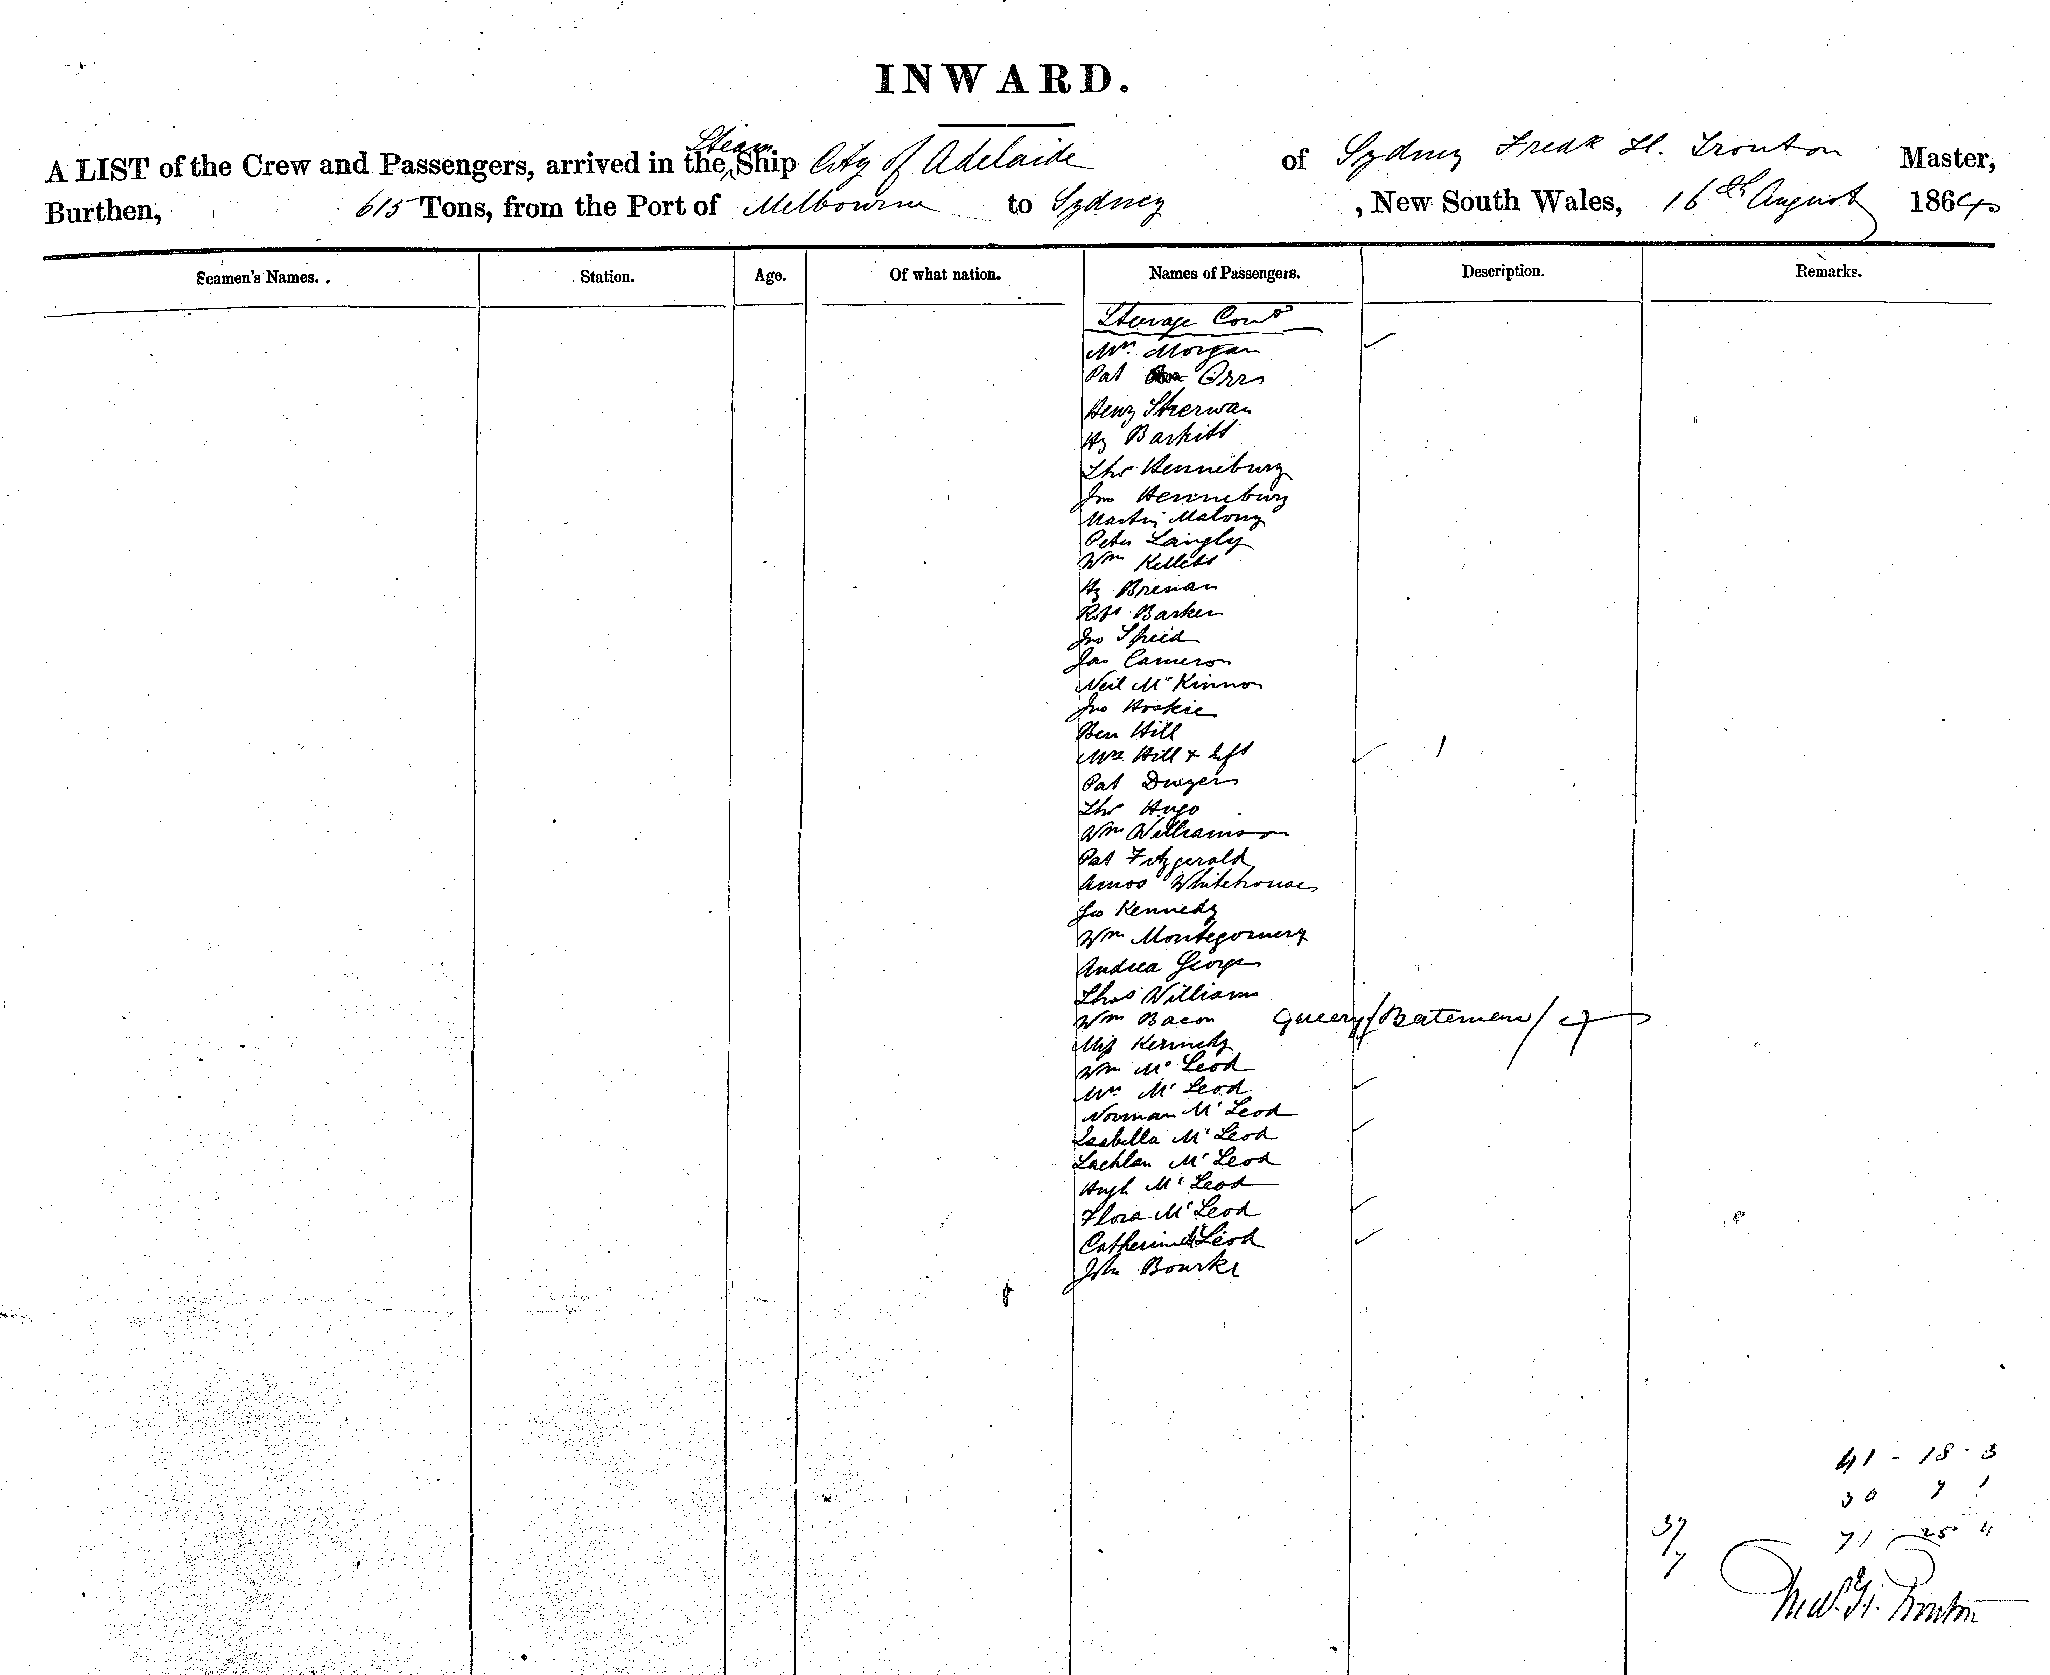 INWARD.
A LIST of the Crew and Passengers, arrived in the Steam Ship City of Adelaide of Sydney Fredk H. Trouton Master,
Burthen, 615 Tons, from the Port of Melbourne to Sydney, New South Wales, 16th August 1864
Seamen's Names. Station. Age. Of what nation. Names of Passengers. Description. Remarks.
Steerage Cont
Mrs Morgan
Pat Orr
Henry
Hy
Thos Henneburg
Jno Henneburg
Martin Malony
Peter Langly
Wm Kelletts
Hy Brenan
Robt Barker
Jno Speed
Jas Cameron
Neil McKinnon
Jno Hoskie
Ben Hill
Mrs Hill & Inft
Pat Dwyer
Thos Hugo
Wm Williamson
Pat Fitzgerald
Amos Whitehouse
Kennedy
Wm Montegomery
Andrea George
Thos Williams
Wm Bacon Query/Bateman/
Miss Kennedy
Wm McLeod
Mrs McLeod
Norman McLeod
Isabella McLeod
Lachlan McLeod
Hugh McLeod
Flora McLeod
Catherine McLeod
John Bourke
41 - 18 - 3
30 7 1
37 71 25 4
7
Fredk H. Trouton